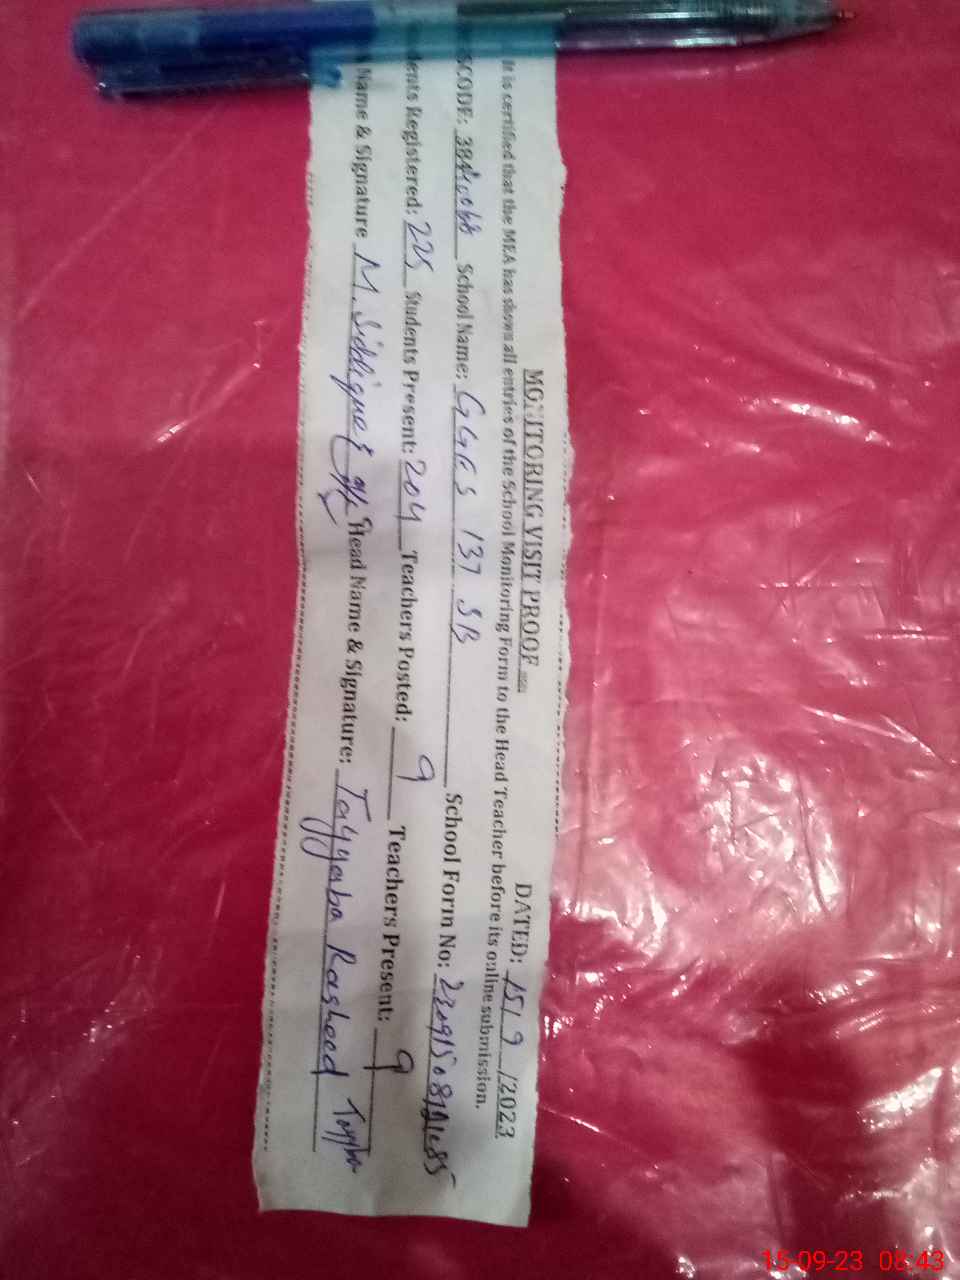 MONITORING VISIT PROOF
DATED: 15/9/2023
It is certified that the MEA has shown all entries of the School Monitoring Form to the Head Teacher before its online submission.
SCODE: School Name: GGES 137 SB School Form No:
dents Registered: 225 Students Present: 204 Teachers Posted: 9 Teachers Present: 9
Name & Signature M. Siddique Head Name & Signature: Tayyaba Rasheed
15-09-23 08:43